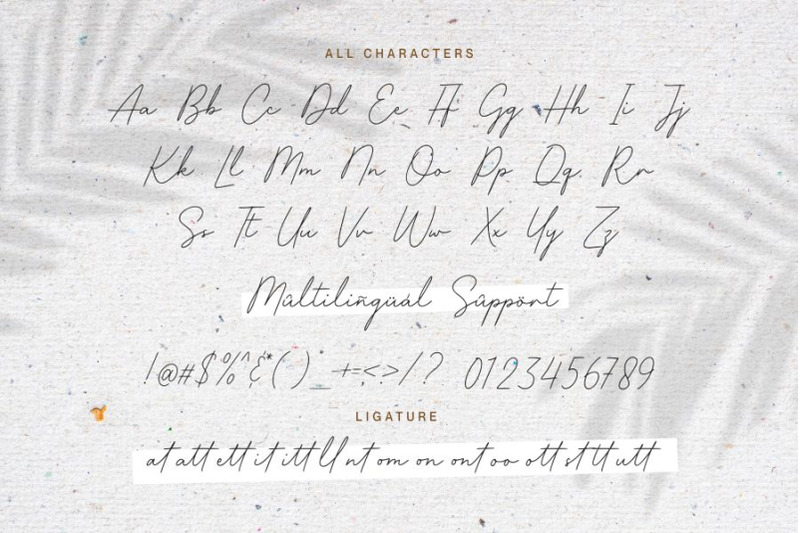 ALL CHARACTERS
Aa Bb Cc Dd Ee Ff Gg Hh Ii Jj
Kk Ll Mm Nn Oo Pp Qq Rr
Ss Tt Uu Vv Ww Xx Yy Zz
Mûltiliñgüál Sûppört
!@#$%^&*( )_+=<,>/? 0123456789
LIGATURE
at att ett it itt ll nt om on ont oo ott st tt utt